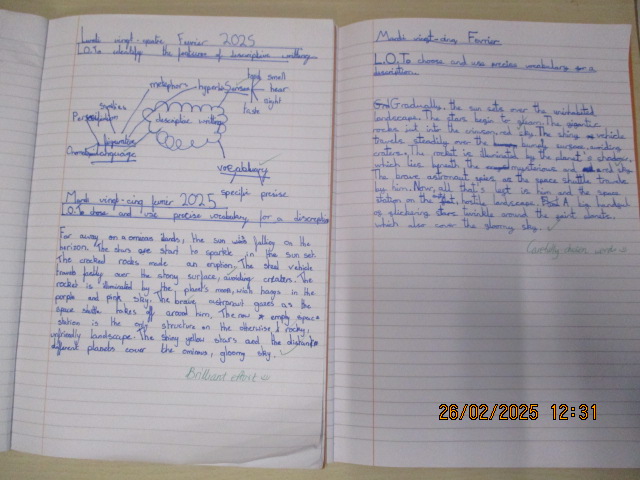 Lundi vingt-quatre Fevrier 2025
L.O.To identify the features of descriptive writting
metaphors hyperbole Senses food smell
hear
sight
taste
similes
descriptive writing
language
vocabulary
specific precise
Mardi vingt-cinq fevrier 2025
L.O.To choose and use precise vocabulary for a description
Far away, on a ominous lands, the sun was falling on the
horizon. The stars are start to sparkle in the sun set.
The cracked rocks made an eruption. The steel vehicle
travels feebly over the stony surface, avoiding craters. The
rocket is illuminated by the planet's moon, wich hangs in the
purple and pink sky. The brave astronaut gazes as the
space shuttle takes off around him. The now empty space
station is the only structure on the otherwise rocky,
unfriendly landscape. The shiny yellow stars and the distant
different planets cover the ominous, gloomy sky.
Brilliant effort
Mardi vingt-cinq Fevrier
L.O.To choose and use precise vocabulary for a
description.
Gradually, the sun sets over the uninhabited
landscape. The stars begin to gloom. The gigantic
rocks jut into the crimson red sky. The shiny vehicle
travels steadily over the bumpy surface, avoiding
craters. The rocket is illuminated by the planet's shadow,
which lies beneath the mysterious red sky.
The brave astronaut gazes, as the space shuttle travels
by him. Now, all that's lust is him and the space
station on the hostile landscape. A big hundred
of glistening stars twinkle around the giant planets.
which also cover the stormy sky.
Carefully chosen words
26/02/2025 12:31